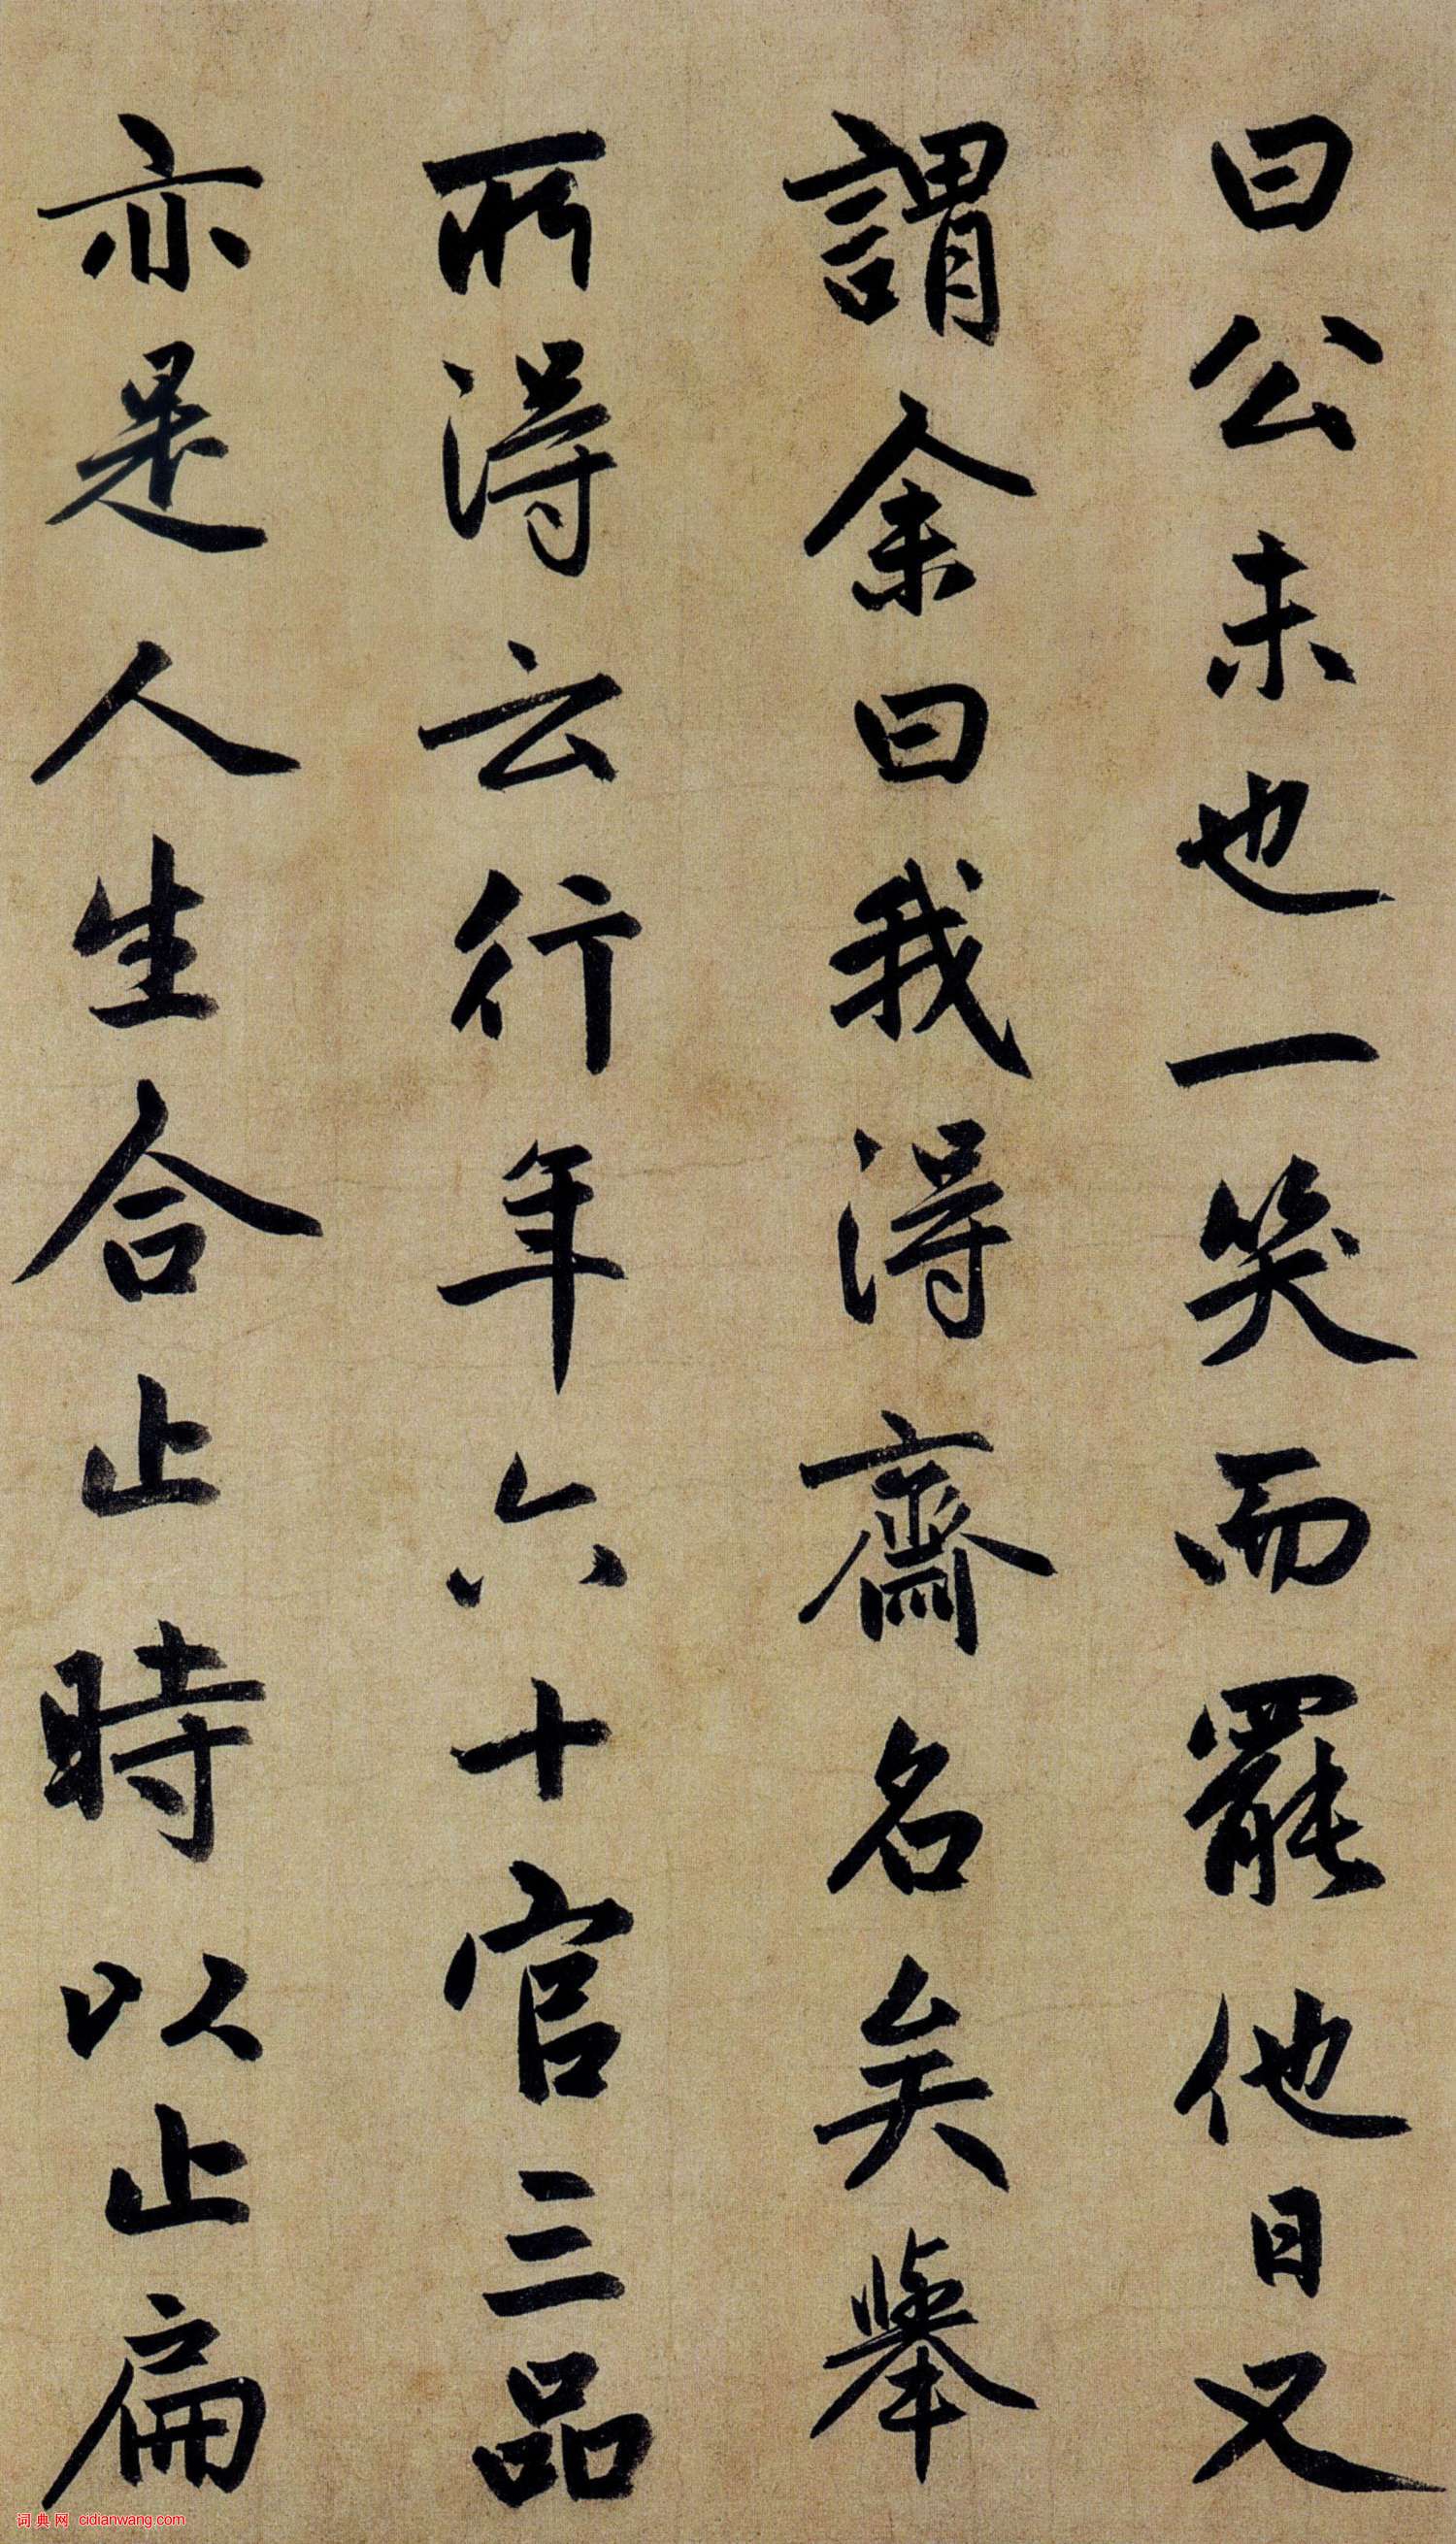 曰公未也一笑而罷他日又
謂余曰我得齋名矣舉
所得云行年六十官三品
亦是人生合止時以止扁
词典网 cidianwang.com